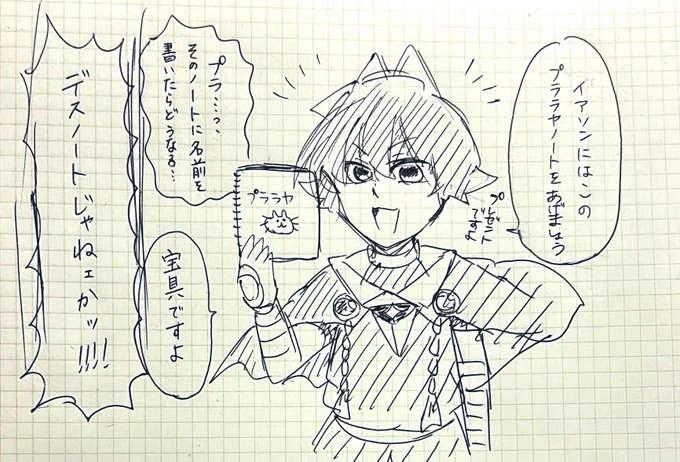 イアソンにはこの
プララヤノートをあげましょう
プレゼント
ですよ
プララヤ
プラ……っ、
そのノートに名前を
書いたらどうなる…
宝具ですよ
デスノートじゃねェかッ!!!!